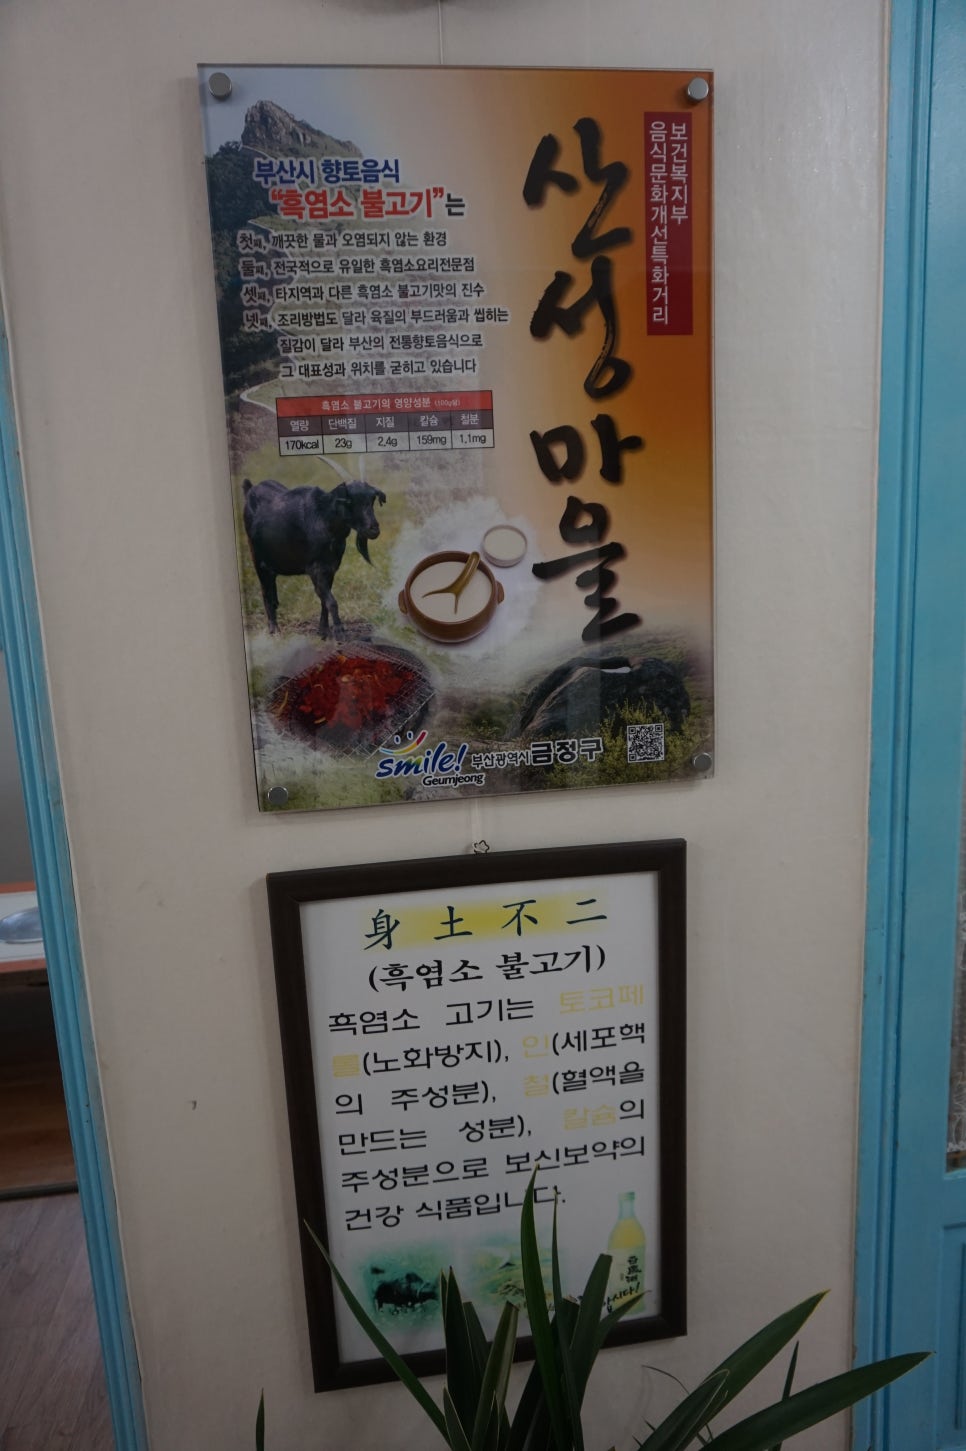 보건복지부
음식문화개선특화거리
산성마을
부산시 향토음식
“흑염소 불고기”는
첫째, 깨끗한 물과 오염되지 않는 환경
둘째, 전국적으로 유일한 흑염소요리전문점
셋째, 타지역과 다른 흑염소 불고기맛의 진수
넷째, 조리방법도 달라 육질의 부드러움과 씹히는
질감이 달라 부산의 전통향토음식으로
그 대표성과 위치를 굳히고 있습니다
흑염소 불고기의 영양성분 (100g당)
열량 단백질 지질 칼슘 철분
170kcal 23g 2.4g 159mg 1.1mg
smile!
Geumjeong
부산광역시금정구
身土不二
(흑염소 불고기)
흑염소 고기는 토코페
롤(노화방지), 인(세포핵
의 주성분), 철(혈액을
만드는 성분), 칼슘의
주성분으로 보신보약의
건강 식품입니다.